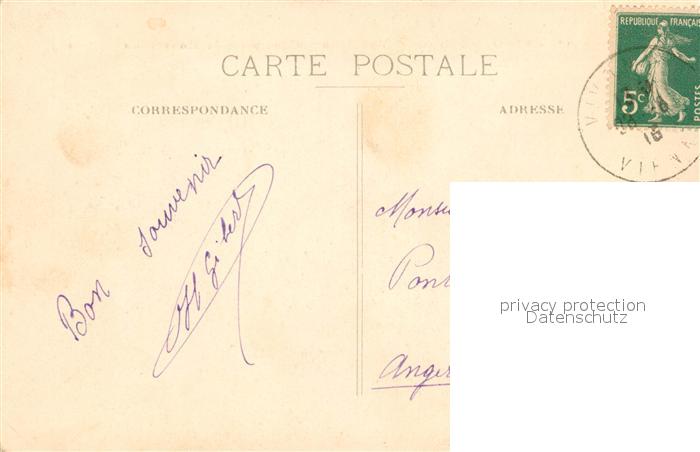 CARTE POSTALE
CORRESPONDANCE
ADRESSE
REPUBLIQUE FRANÇAIS
5c
POSTES
16
Bon souvenir
Gibert
Monsi
Pon
Anger
privacy protection
Datenschutz